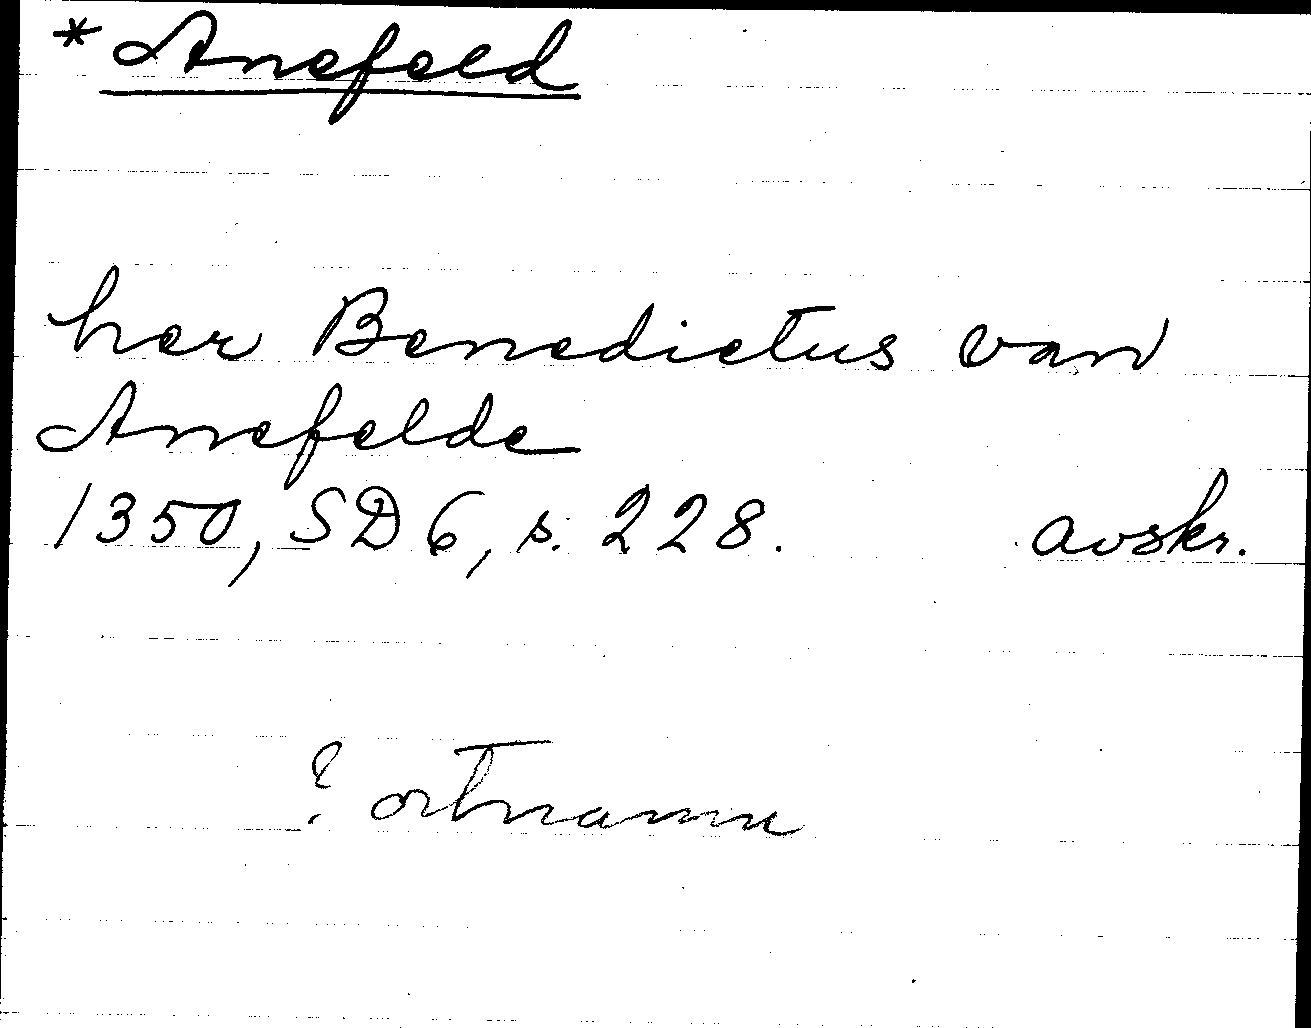 * Anefeld
her Benedictus van
Anefelde
1350, SD 6, s. 228. avskr.
? ortnamn